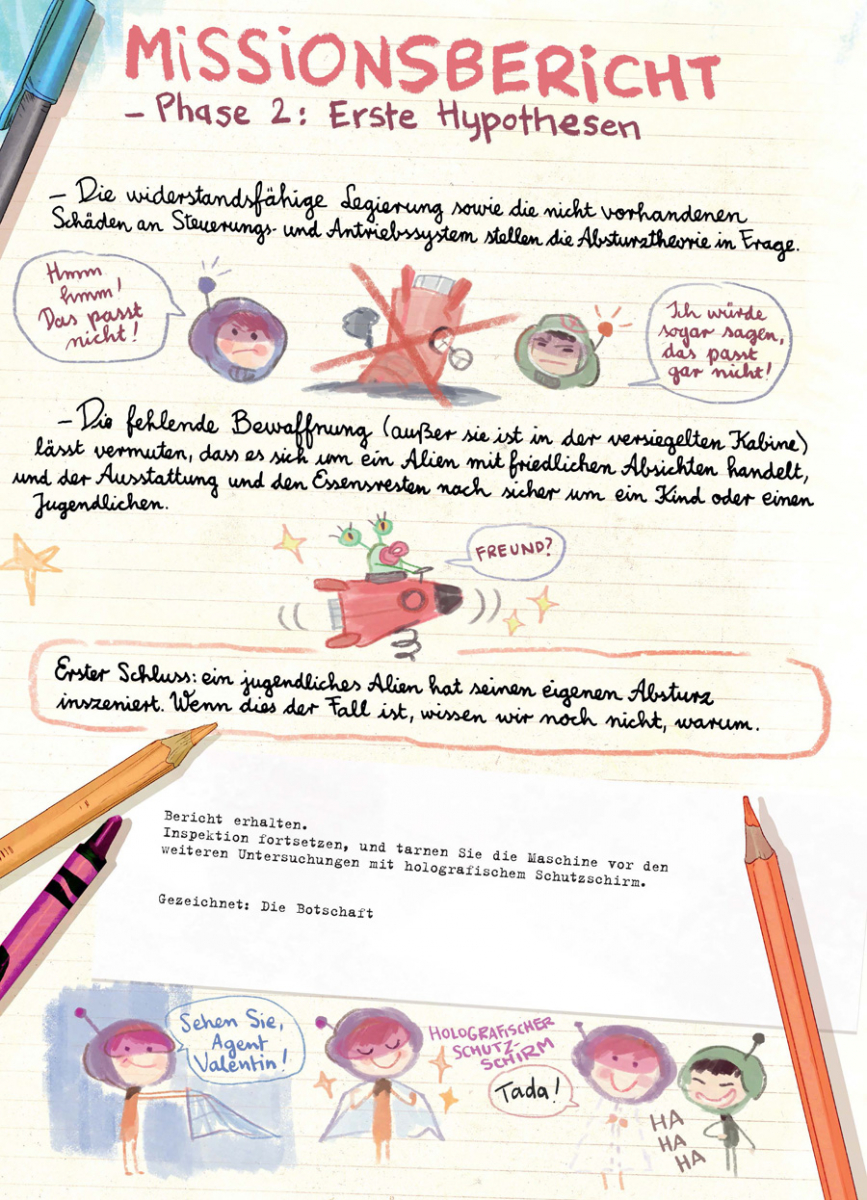 MiSSiONSBERiCHT
– Phase 2: Erste Hypothesen
– Die widerstandsfähige Legierung sowie die nicht vorhandenen
Schäden an Steuerungs- und Antriebssystem stellen die Absturztheorie in Frage.
Hmm
hmm!
Das passt
nicht!
Ich würde
sogar sagen,
das passt
gar nicht!
– Die fehlende Bewaffnung (außer sie ist in der versiegelten Kabine)
lässt vermuten, dass es sich um ein Alien mit friedlichen Absichten handelt,
und der Ausstattung und den Essensresten nach sicher um ein Kind oder einen
Jugendlichen.
FREUND?
Erster Schluss: ein jugendliches Alien hat seinen eigenen Absturz
inszeniert. Wenn dies der Fall ist, wissen wir noch nicht, warum.
Bericht erhalten.
Inspektion fortsetzen, und tarnen Sie die Maschine vor den
weiteren Untersuchungen mit holografischem Schutzschirm.
Gezeichnet: Die Botschaft
Sehen Sie,
Agent
Valentin!
HOLOGRAFISCHER
SCHUTZ-
SCHIRM
Tada!
HA
HA
HA